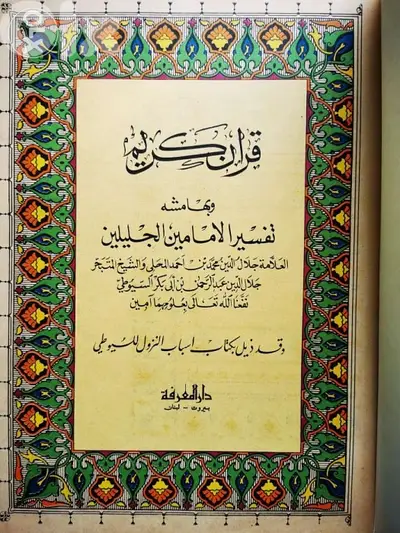 قرآن كريم
وبهامشه
تفسير الإمامين الجليلين
العلامة جلال الدين محمد بن أحمد المحلي والشيخ المتبحر
جلال الدين عبد الرحمن بن أبي بكر السيوطي
نفعنا الله تعالى بعلومهما آمين
وقد ذيل بكتاب أسباب النزول للسيوطي
دار المعرفة
بيروت - لبنان